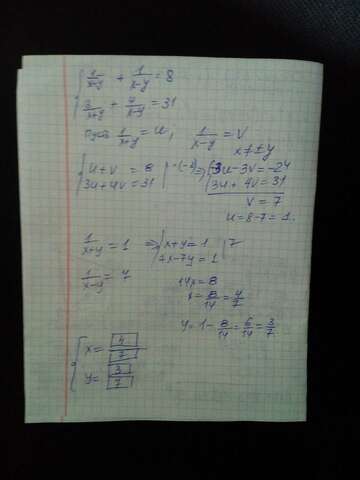 1/(x+y) + 1/(x-y) = 8
3/(x+y) + 4/(x-y) = 31
Пусть 1/(x+y) = u, 1/(x-y) = v
x ≠ ±y
{ u+v = 8 | ·(-3) ⇒ { -3u-3v=-24
3u+4v=31 3u+4v=31
v = 7
u=8-7=1.
1/(x+y) = 1 ⇒ { x+y=1 | 7
1/(x-y) = 7 7x-7y=1
14x=8
x= 8/14 = 4/7
y=1- 8/14 = 6/14 = 3/7
{ x= 4/7
y= 3/7